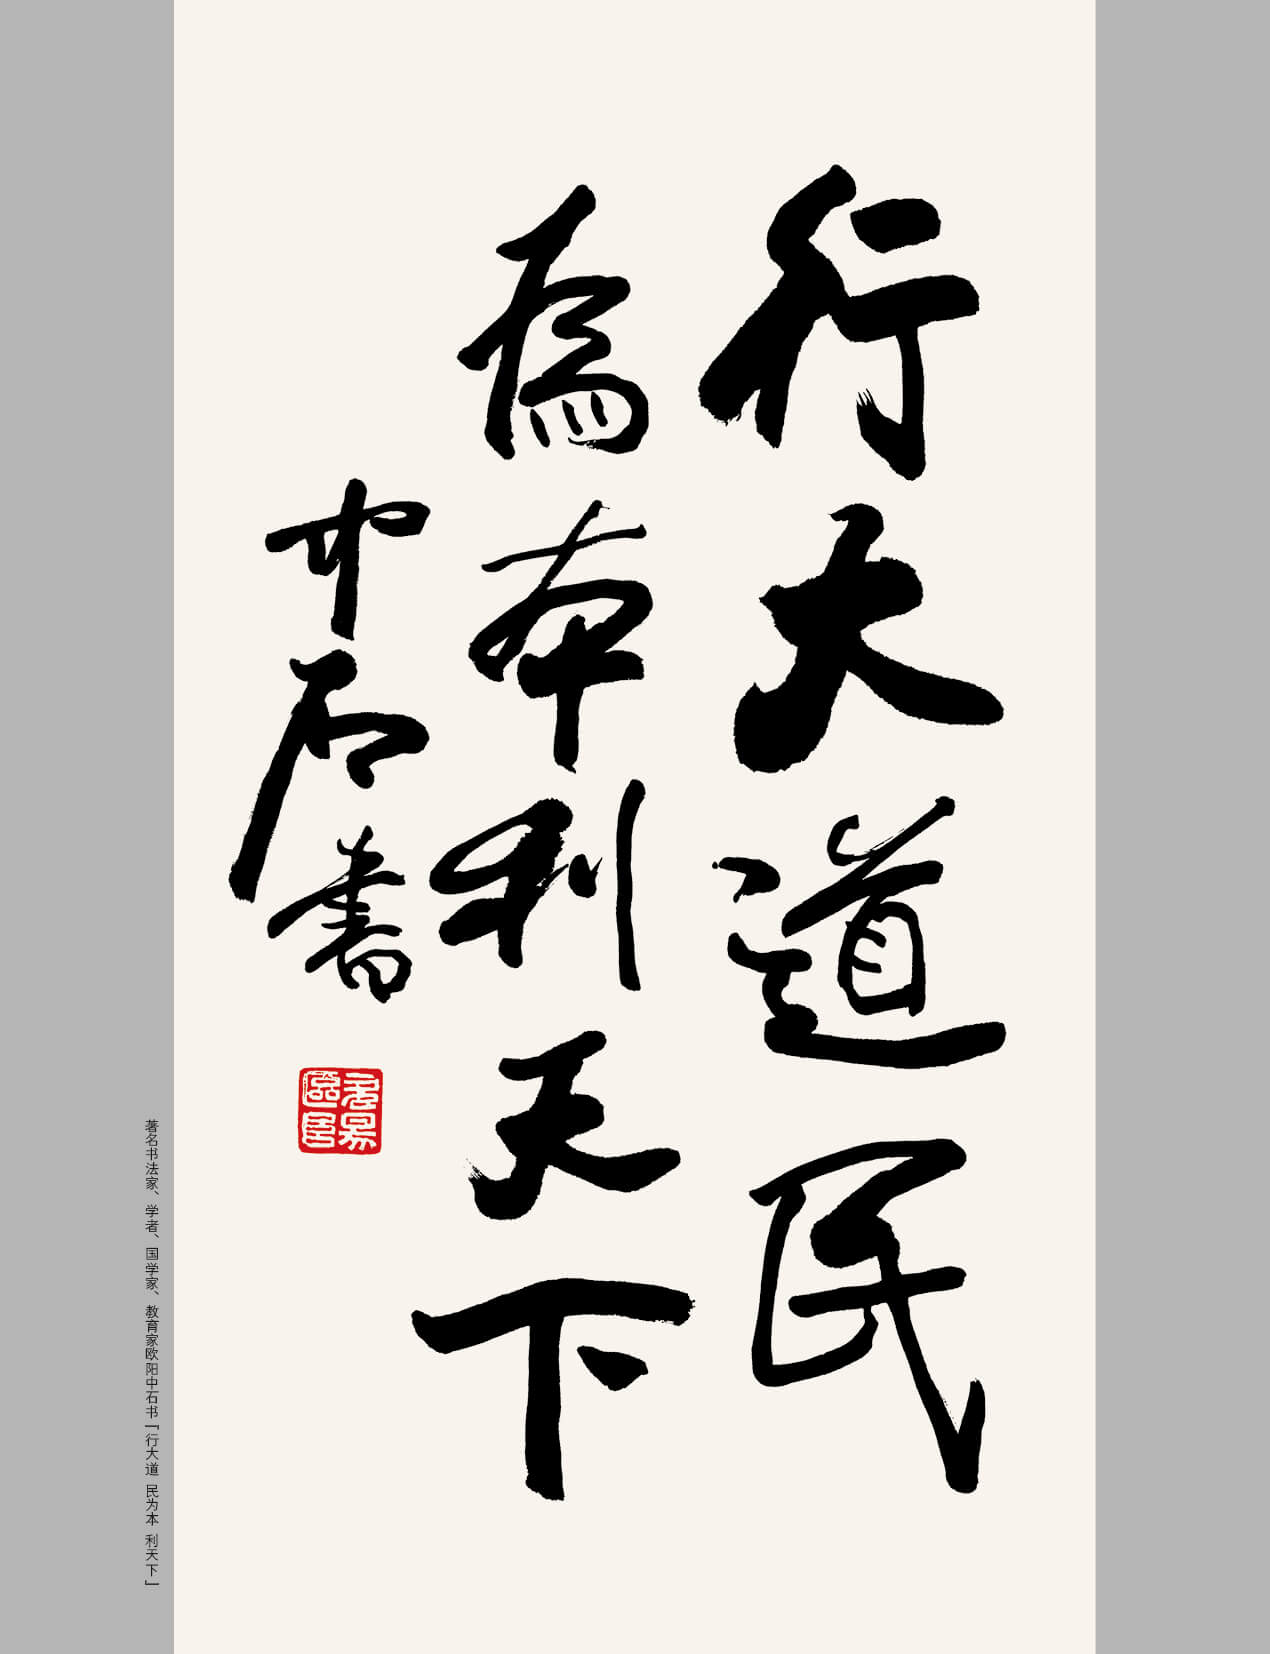 行大道民
為本利天下
中石書
著名书法家、学者、国学家、教育家欧阳中石书「行大道 民为本 利天下」